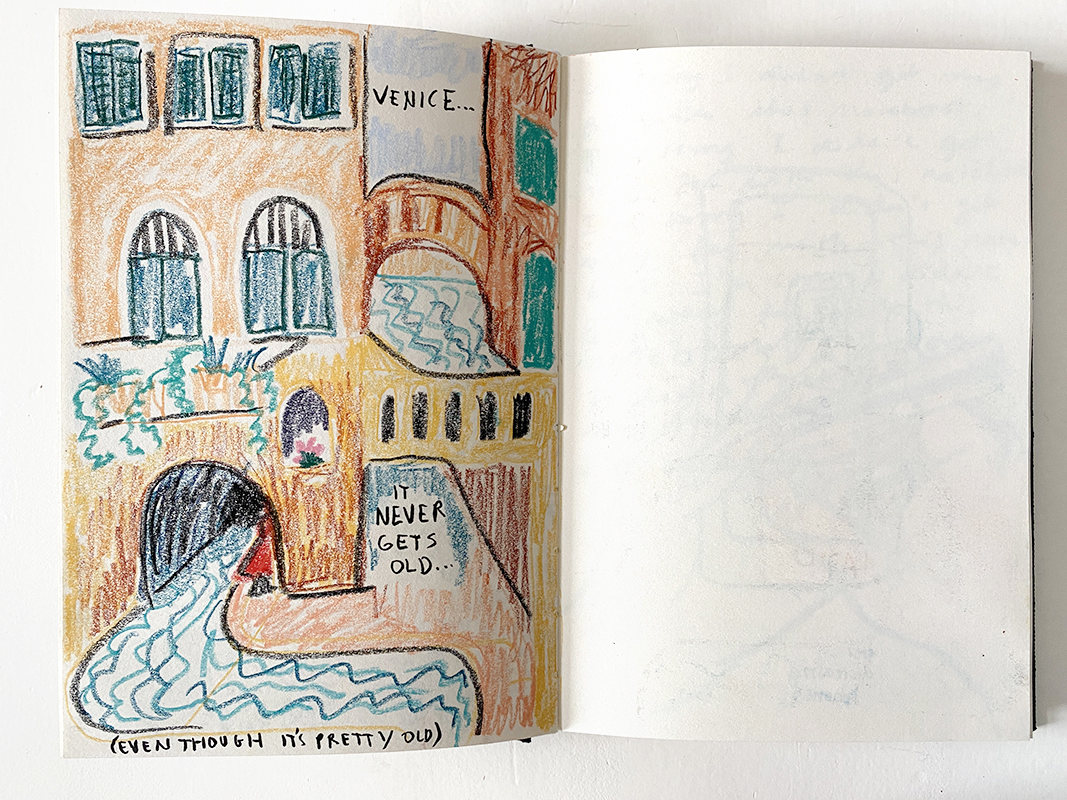 VENICE...
IT
NEVER
GETS
OLD...
(EVEN THOUGH IT'S PRETTY OLD)